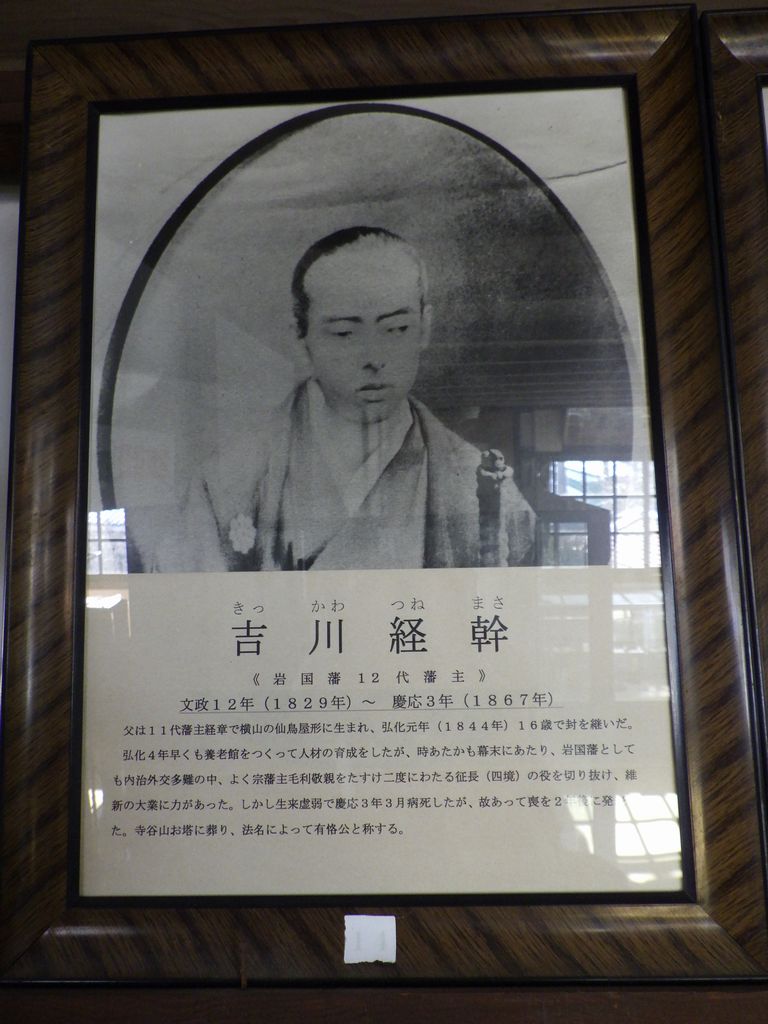 きっ かわ つね まさ
吉川経幹
《岩国藩12代藩主》
文政12年(1829年)～ 慶応3年(1867年)
父は11代藩主経章で横山の仙鳥屋形に生まれ、弘化元年(1844年)16歳で封を継いだ。
弘化4年早くも養老館をつくって人材の育成をしたが、時あたかも幕末にあたり、岩国藩として
も内治外交多難の中、よく宗藩主毛利敬親をたすけ二度にわたる征長(四境)の役を切り抜け、維
新の大業に力があった。しかし生来虚弱で慶応3年3月病死したが、故あって喪を2年後に発
た。寺谷山お塔に葬り、法名によって有恪公と称する。